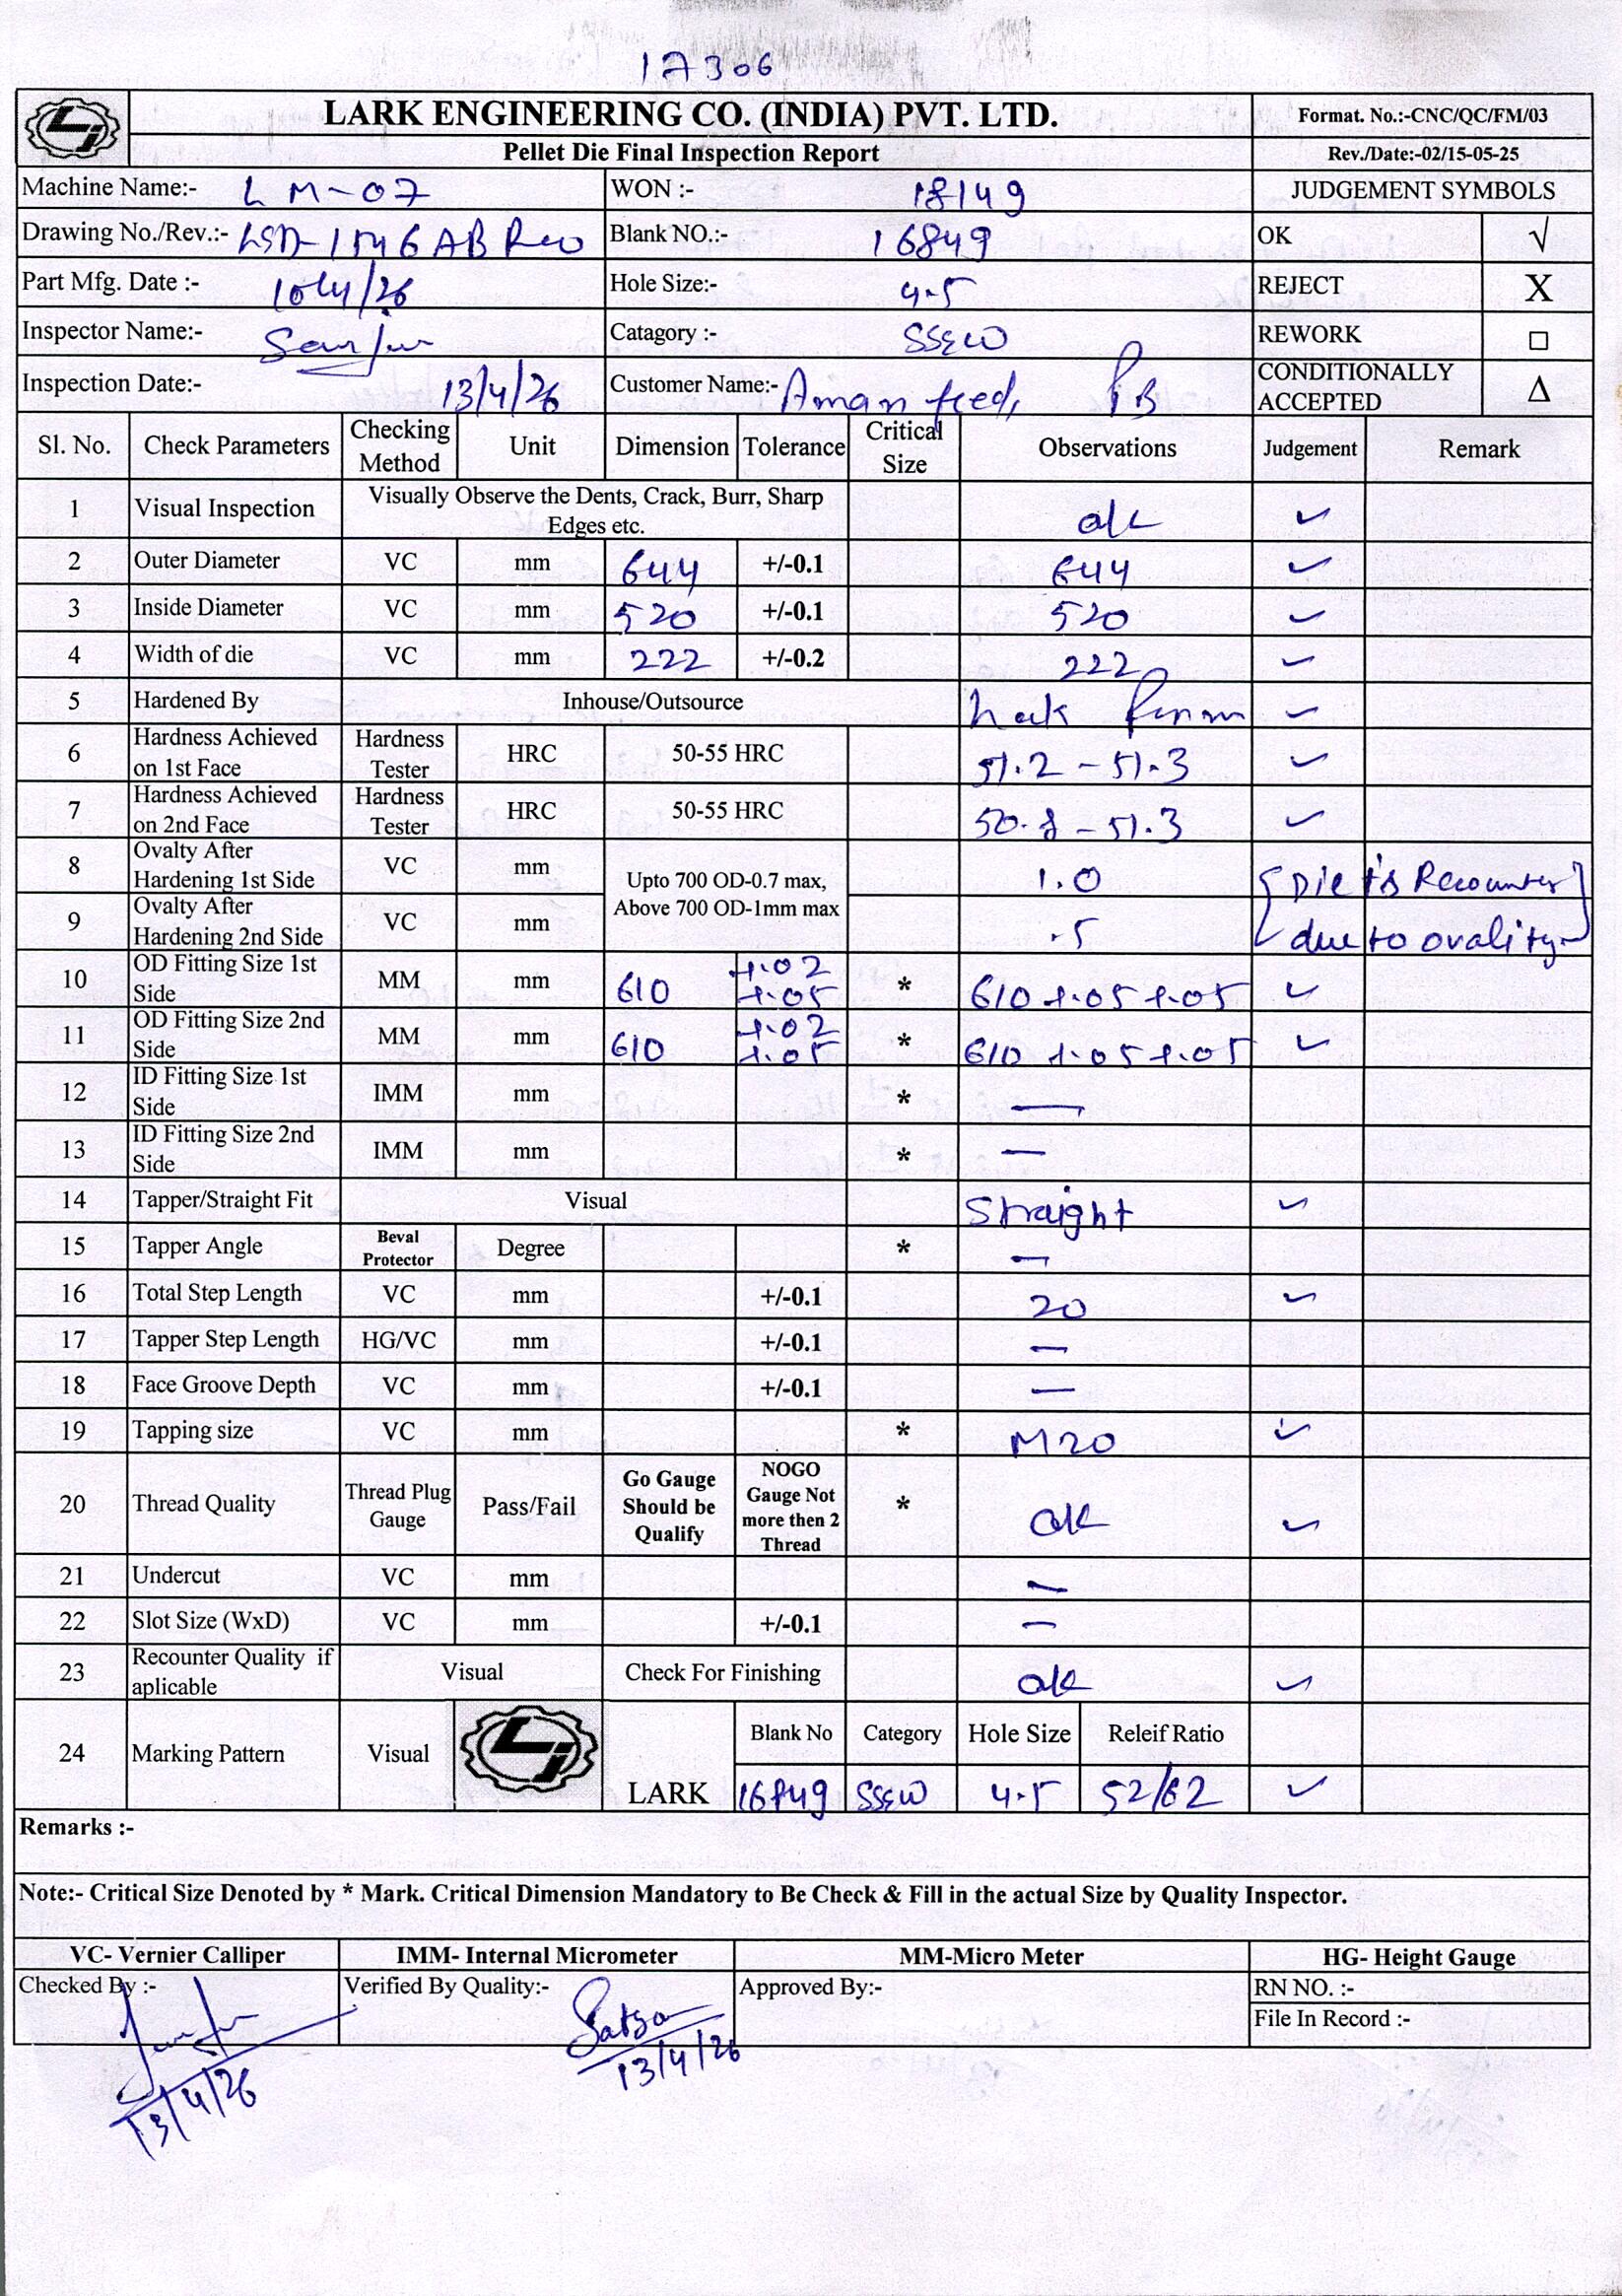 17306
LARK ENGINEERING CO. (INDIA) PVT. LTD.
Format. No.:-CNC/QC/FM/03
Pellet Die Final Inspection Report
Rev./Date:-02/15-05-25
Machine Name:- LM-07 WON :- 18149 JUDGEMENT SYMBOLS
Drawing No./Rev.:- Blank NO.:- 16849 OK √
Part Mfg. Date :- Hole Size:- 4.5 REJECT X
Inspector Name:- Catagory :- REWORK □
Inspection Date:- 13/4/26 Customer Name:- Aman feed, PB CONDITIONALLY ACCEPTED Δ
Sl. No. Check Parameters Checking Method Unit Dimension Tolerance Critical Size Observations Judgement Remark
1 Visual Inspection Visually Observe the Dents, Crack, Burr, Sharp Edges etc. ok ✓
2 Outer Diameter VC mm 644 +/-0.1 644 ✓
3 Inside Diameter VC mm 520 +/-0.1 520 ✓
4 Width of die VC mm 222 +/-0.2 222 ✓
5 Hardened By Inhouse/Outsource ✓
6 Hardness Achieved on 1st Face Hardness Tester HRC 50-55 HRC 51.2 - 51.3 ✓
7 Hardness Achieved on 2nd Face Hardness Tester HRC 50-55 HRC 50.8 - 51.3 ✓
8 Ovalty After Hardening 1st Side VC mm Upto 700 OD-0.7 max, Above 700 OD-1mm max 1.0 Die is Recounter
9 Ovalty After Hardening 2nd Side VC mm .5 due to ovality
10 OD Fitting Size 1st Side MM mm 610 +.02 +.05 * 610 +.05 +.05 ✓
11 OD Fitting Size 2nd Side MM mm 610 +.02 +.05 * 610 +.05 +.05 ✓
12 ID Fitting Size 1st Side IMM mm * —
13 ID Fitting Size 2nd Side IMM mm * —
14 Tapper/Straight Fit Visual Straight ✓
15 Tapper Angle Beval Protector Degree * —
16 Total Step Length VC mm +/-0.1 20 ✓
17 Tapper Step Length HG/VC mm +/-0.1 —
18 Face Groove Depth VC mm +/-0.1 —
19 Tapping size VC mm * M20 ✓
20 Thread Quality Thread Plug Gauge Pass/Fail Go Gauge Should be Qualify NOGO Gauge Not more then 2 Thread * ok ✓
21 Undercut VC mm —
22 Slot Size (WxD) VC mm +/-0.1 —
23 Recounter Quality if aplicable Visual Check For Finishing ok ✓
Blank No Category Hole Size Releif Ratio
24 Marking Pattern Visual LARK 16849 4.5 52/62 ✓
Remarks :-
Note:- Critical Size Denoted by * Mark. Critical Dimension Mandatory to Be Check & Fill in the actual Size by Quality Inspector.
VC- Vernier Calliper IMM- Internal Micrometer MM-Micro Meter HG- Height Gauge
Checked By :- Verified By Quality:- Approved By:- RN NO. :-
File In Record :-
13/4/26 13/4/26